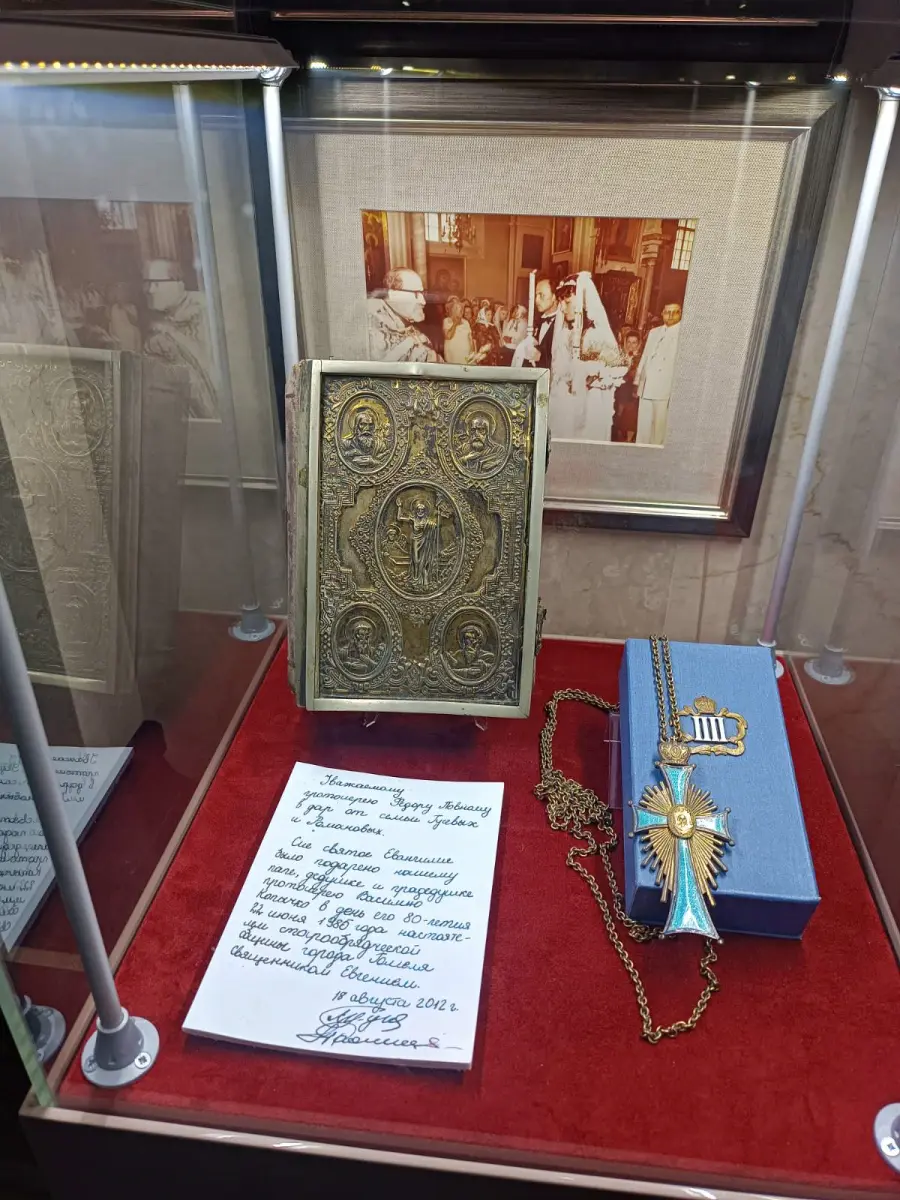 Уважаемому
протоиерею Федору Повному
в дар от семьи Гусевых
и Романовых.
Сие святое Евангилие
было подарено нашему
папе, дедушке и прадедушке
протоиерею Василию
Копычко в день его 80-летия
22 июня 1986 года настояте-
лем старообрядческой
общины города Гомеля
священником Евгением.
18 августа 2012 г.